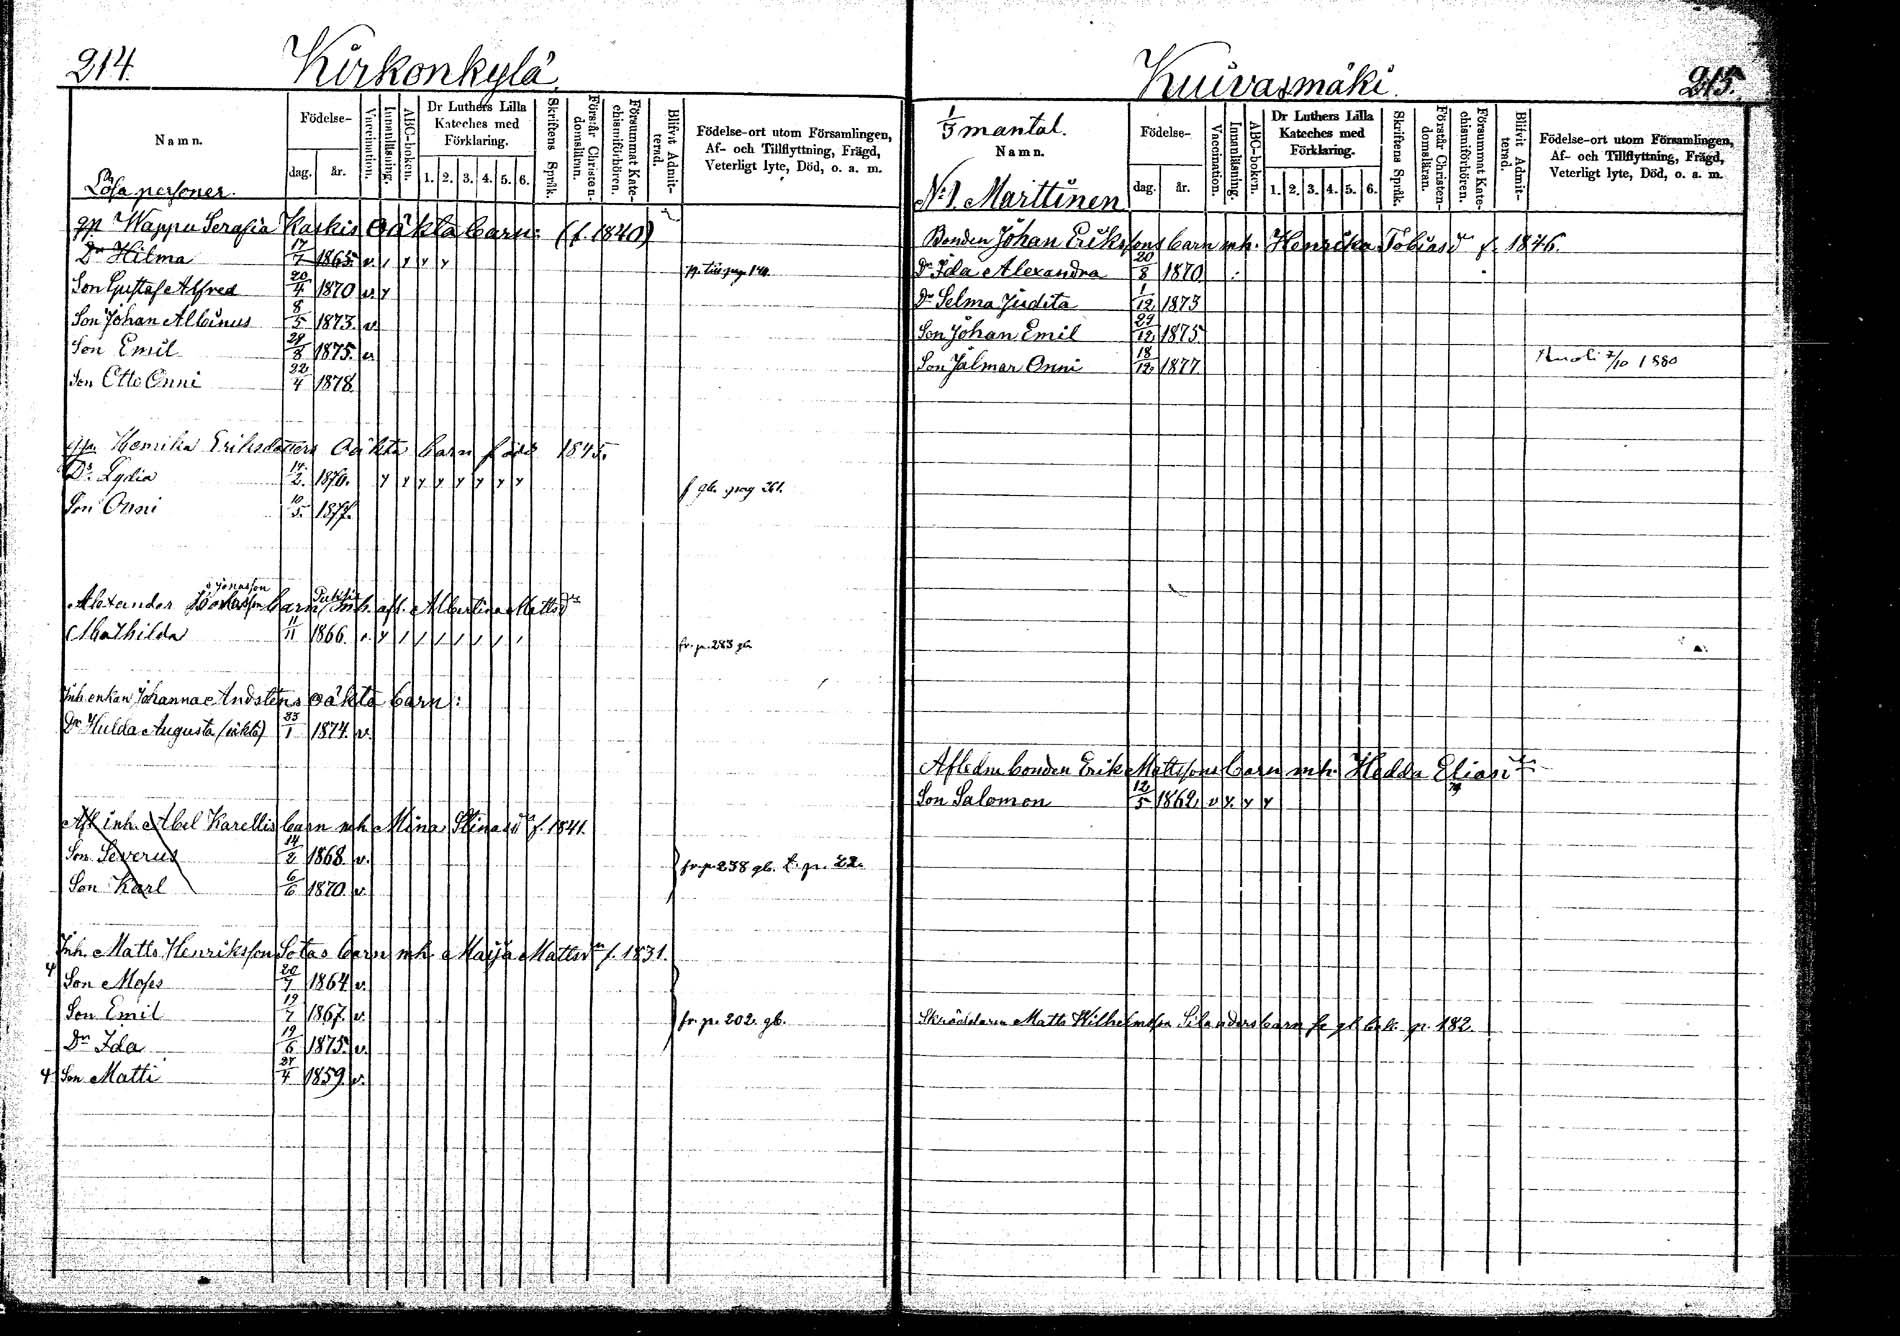 214.
Kirkonkylä
Namn.
Födelse-
dag.
år.
Vaccination.
Innanläsning.
ABC-boken.
Dr Luthers Lilla Kateches med Förklaring.
1. 2. 3. 4. 5. 6.
Skriftens Språk.
Förstår Christen-domsläran.
Försummat Kate-chismiförhören.
Blifvit Admit-terad.
Födelse-ort utom Församlingen,
Af- och Tillflyttning, Frägd,
Veterligt lyte, Död, o. a. m.
Lösa personer.
qp. Wappu Serafia Kaskis oäkta barn: (f. 1840)
Dr Hilma 17/7 1865 v. / y y y
Son Gustaf Alfred 20/4 1870 v. y
Son Johan Albinus 8/5 1873. v.
Son Emil 28/8 1875. v.
Son Otto Onni 22/4 1878.
Henrika Eriksdotters oäkta barn född 1845.
Dr. Lydia 14/2. 1870. y y y y y y y y f gb. pag 261.
Son Onni 10/5. 1877.
Jonasson
Alexander barn mh. afl. Albertina Mattsdr
Mathilda 11/11 1866. v. y / / / / / / / fr. p. 283 gb
Inh. enkan Johanna Andstens oäkta barn:
Dr Hulda Augusta (äkta) 23/1 1874. v.
Afl. inh. Abel Karellis barn mh Mina Stinasdr f. 1841.
Son Severus 14/2 1868 v. fr. p. 238 gb. t. p. 22.
Son Karl 6/6 1870. v.
Inh. Matts Henriksson Sotas barn mh. Maija Mattsdr f. 1831.
Son Moses 20/7 1864 v.
Son Emil 19/7 1867. v. fr. p. 202. gb.
Dr Ida 19/6 1875. v.
Son Matti 27/4 1859. v.
Kuivasmäki.
215.
1/3 mantal.
Namn.
Födelse-
dag.
år.
Vaccination.
Innanläsning.
ABC-boken.
Dr Luthers Lilla Kateches med Förklaring.
1. 2. 3. 4. 5. 6.
Skriftens Språk.
Förstår Christen-domsläran.
Försummat Kate-chismiförhören.
Blifvit Admit-terad.
Födelse-ort utom Församlingen,
Af- och Tillflyttning, Frägd,
Veterligt lyte, Död, o. a. m.
N:1. Marttinen
Bonden Johan Erikssons barn mh. Henrika Tobiasdr f. 1846.
Dr Ida Alexandra 20/8 1870
Dr Selma Judita 1/12 1873
Son Johan Emil 29/12 1875
Son Jalmar Onni 18/12 1877 Kuoli 7/10 1880
Afledne bonden Erik Mattssons barn mh. Hedda Eliasdr
Son Salomon 12/5 1862. v y. y y
Skräddaren Matts Wilhelmsson Silanders barn se gl. bok. p. 182.